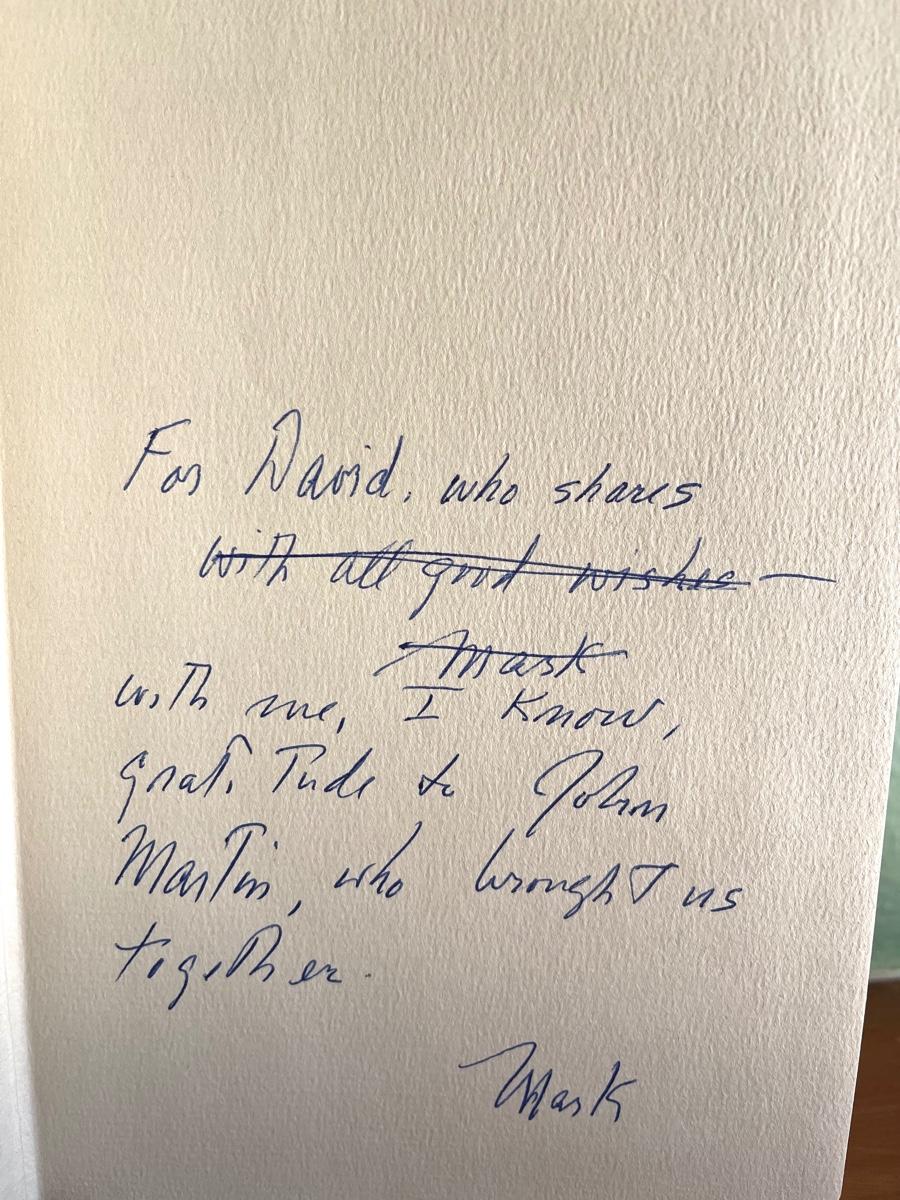 For David, who shares
with all good wishes —
Mark
with me, I know,
gratitude to John
Martin, who brought us
together.
Mark